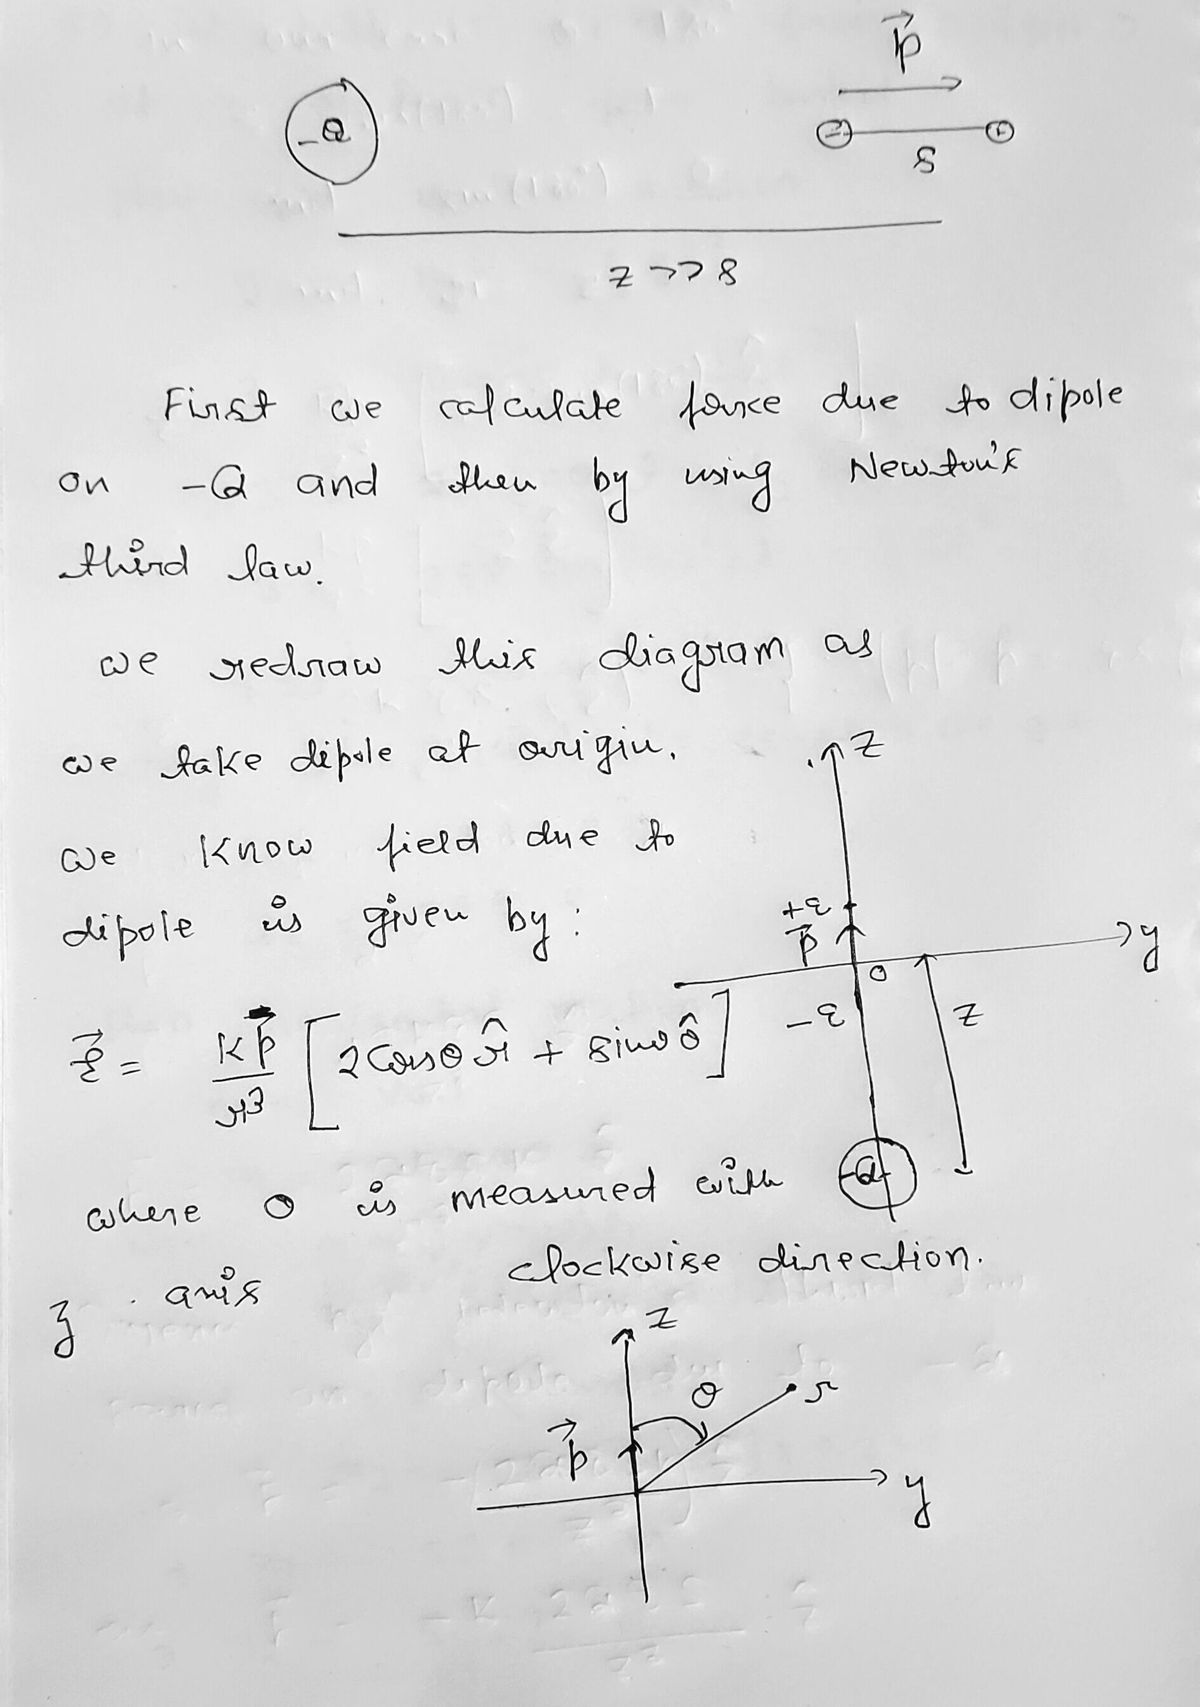 p⃗
-Q
- +
s
z >> s
First we calculate force due to dipole
on -Q and then by using Newton's
third law.
we redraw this diagram as
we take dipole at origin.
z
we know field due to
dipole is given by:
+q
p⃗
y
O
-q
z
E⃗ = kp⃗/r³ [2cosθ r̂ + sinθ θ̂]
-Q
where θ is measured with
z axis clockwise direction.
z
θ
r
p⃗
y